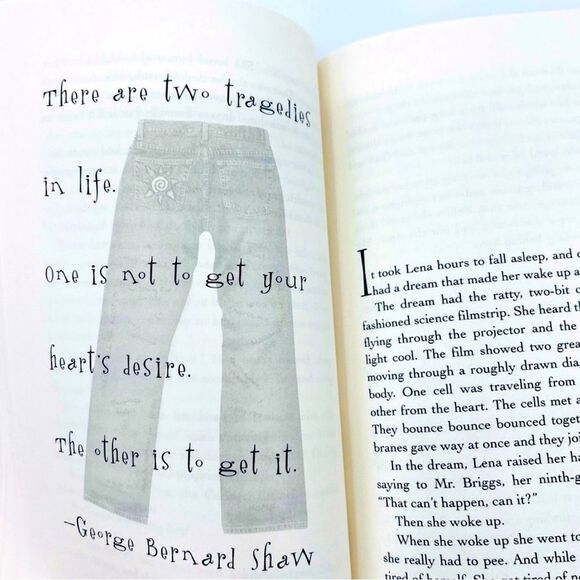 There are two tragedies
in life.
One is not to get your
heart's desire.
The other is to get it.
—George Bernard Shaw
It took Lena hours to fall asleep, and
had a dream that made her wake up
The dream had the ratty, two-bit
fashioned science filmstrip. She heard
flying through the projector and the
light cool. The film showed two
moving through a roughly drawn
body. One cell was traveling from
other from the heart. The cells met
They bounce bounce bounced
branes gave way at once and they
In the dream, Lena raised her
saying to Mr. Briggs, her
"That can't happen, can it?"
Then she woke up.
When she woke up she went to
she really had to pee. And while
tired of herself. She got tired of